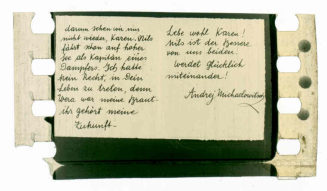 darum sehen wir uns
nicht wieder, Karen. Nils
fährt schon auf hoher
See als Kapitän eines
Dampfers. Ich hatte
kein Recht, in Dein
Leben zu treten, denn
Vera war meine Braut -
ihr gehört meine
Zukunft -
Lebe wohl Karen!
Nils ist der Bessere
von uns beiden.
Werdet glücklich
miteinander!
Andrej